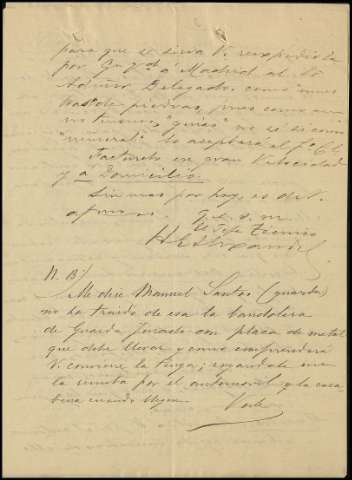 para que se sirva V. reexpedirla
por Gn Vd. á Madrid al Sr
Delegado, como
de piedras, pues como aun
no tenemos "guias" no se si como
"mineral" lo aceptará el F. C.
Facturelo en gran Velocidad
y á Domicilio.
Sin mas por hoy, es de V.
afmo. s. s.
q. e. s. m.
El Jefe técnico
N. B/
Me dice Manuel Santos (guarda)
no ha traido de esa la bandolera
de Guarda Jurado con placa de metal
que debe llevar y como comprenderá
V. conviene la tenga; mandele en
la por el automovil y la caja
cuando llegue.
Vale